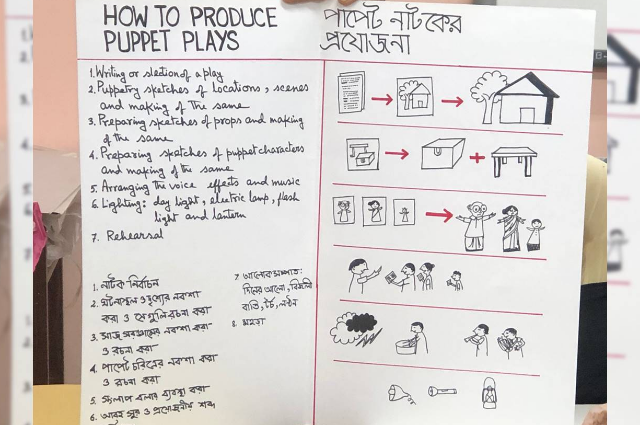 HOW TO PRODUCE
PUPPET PLAYS
পাপেট নাটকের
প্রযোজনা
1. Writing or slection of a play
2. Puppetry sketches of locations, scenes
and making of the same
3. Preparing sketches of props and making
of the same
4. Preparing sketches of puppet characters
and making of the same
5. Arranging the voice effects and music
6. Lighting: day light, electric lamp, flash
light and lantern
7. Rehearsal
১. নাটক নির্বাচন
২. ঘটনাস্থল ও দৃশ্যের নকশা
করা ও সেগুলি রচনা করা
৩. সাজ সরঞ্জামের নকশা করা
ও রচনা করা
৪. পাপেট চরিত্রের নকশা করা
ও রচনা করা
৫. সংলাপ বলার ব্যবস্থা করা
৬. আবহ সুর ও প্রয়োজনীয় শব্দ
৭ আলোক সম্পাত:
দিনের আলো, বিজলী
বাতি, টর্চ, লন্ঠন
৮. মহড়া